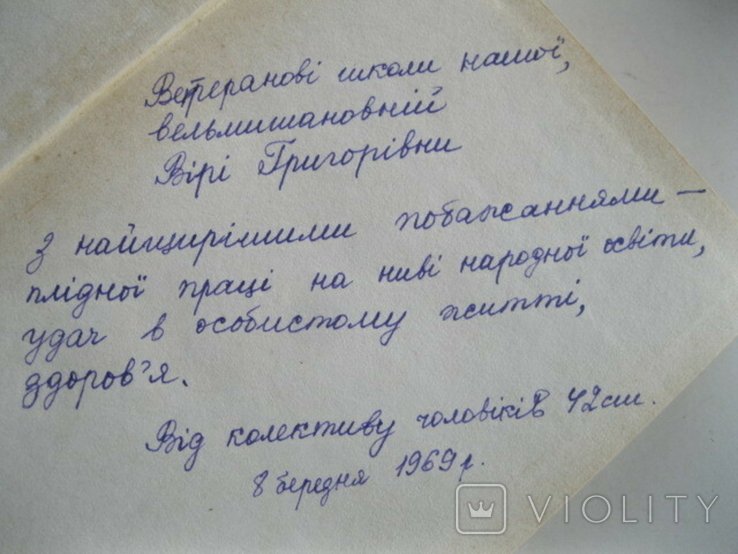 Ветеранові школи нашої,
вельмишановній
Вірі Григорівни
З найщирішими побажаннями —
плідної праці на ниві народної освіти,
удач в особистому житті,
здоров'я.
Від колективу чоловіків 42сш.
8 березня 1969р.
VIOLITY